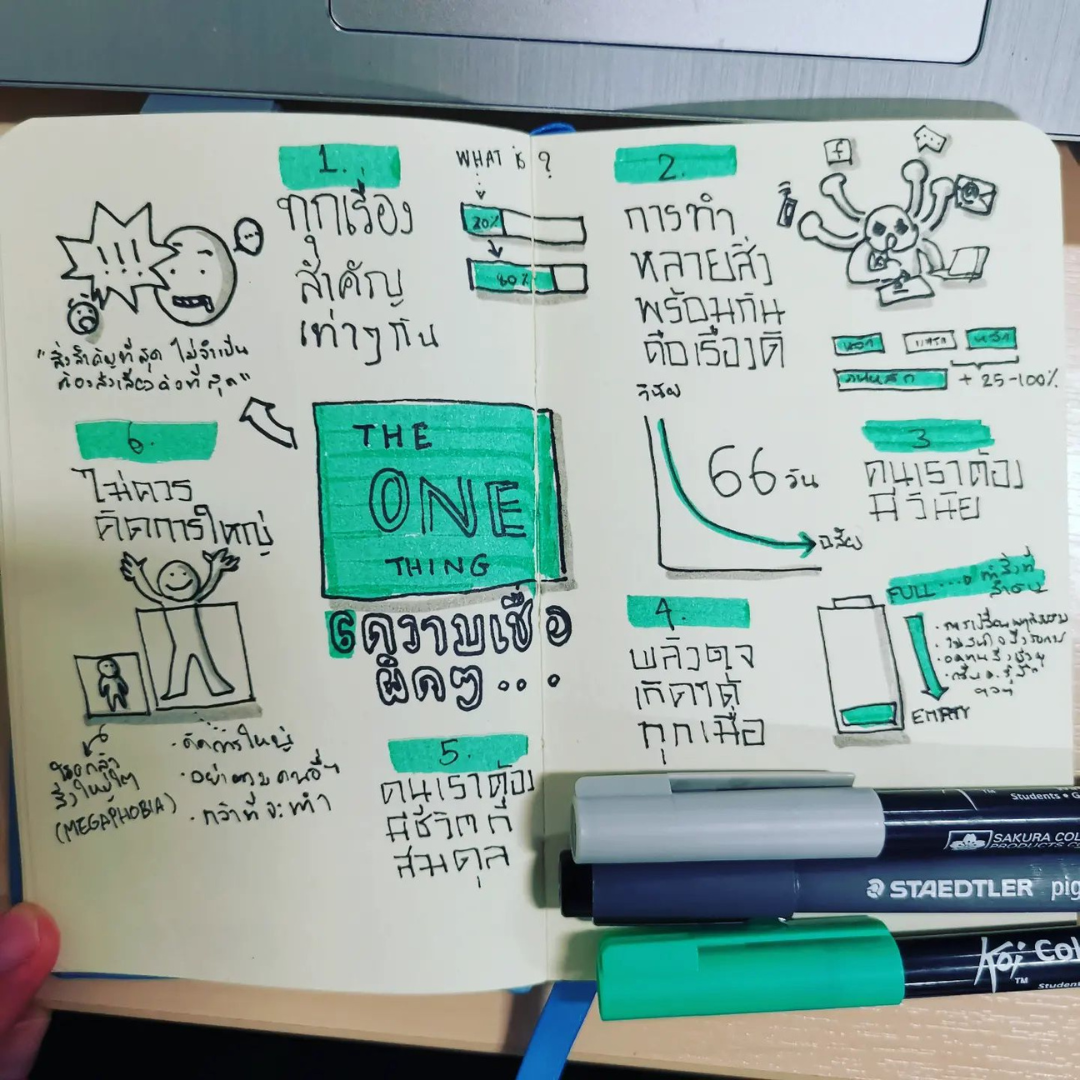 1.
ทุกเรื่อง
สำคัญ
เท่าๆกัน
WHAT IS ?
20%
80%
!!!
"สิ่งสำคัญที่สุด ไม่จำเป็น
ต้องส่งเสียงดังที่สุด"
THE
ONE
THING
6 ความเชื่อ
ผิดๆ...
2.
การทำ
หลายสิ่ง
พร้อมกัน
คือเรื่องดี
f
@
+ 25-100%
3
คนเราต้อง
มีวินัย
วินัย
66 วัน
นิสัย
4.
พลังใจ
เกิดได้
ทุกเมื่อ
FULL
EMPTY
5.
คนเราต้อง
มีชีวิตที่
สมดุล
6.
ไม่ควร
คิดการใหญ่
โรคกลัว
สิ่งใหญ่โต
(MEGAPHOBIA)
· คิดการใหญ่
· อย่าตามคนอื่น
· กล้าที่จะทำ
Students • G
SAKURA COL
PRODUCTS C
STAEDTLER pig
Koi Col
TM
Studen